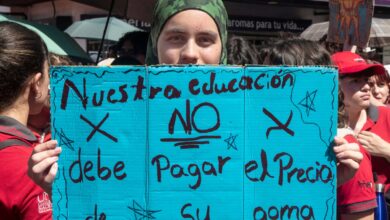 romas para tu vida...
Nuestra educación
NO
debe Pagar el Precio
de su goma